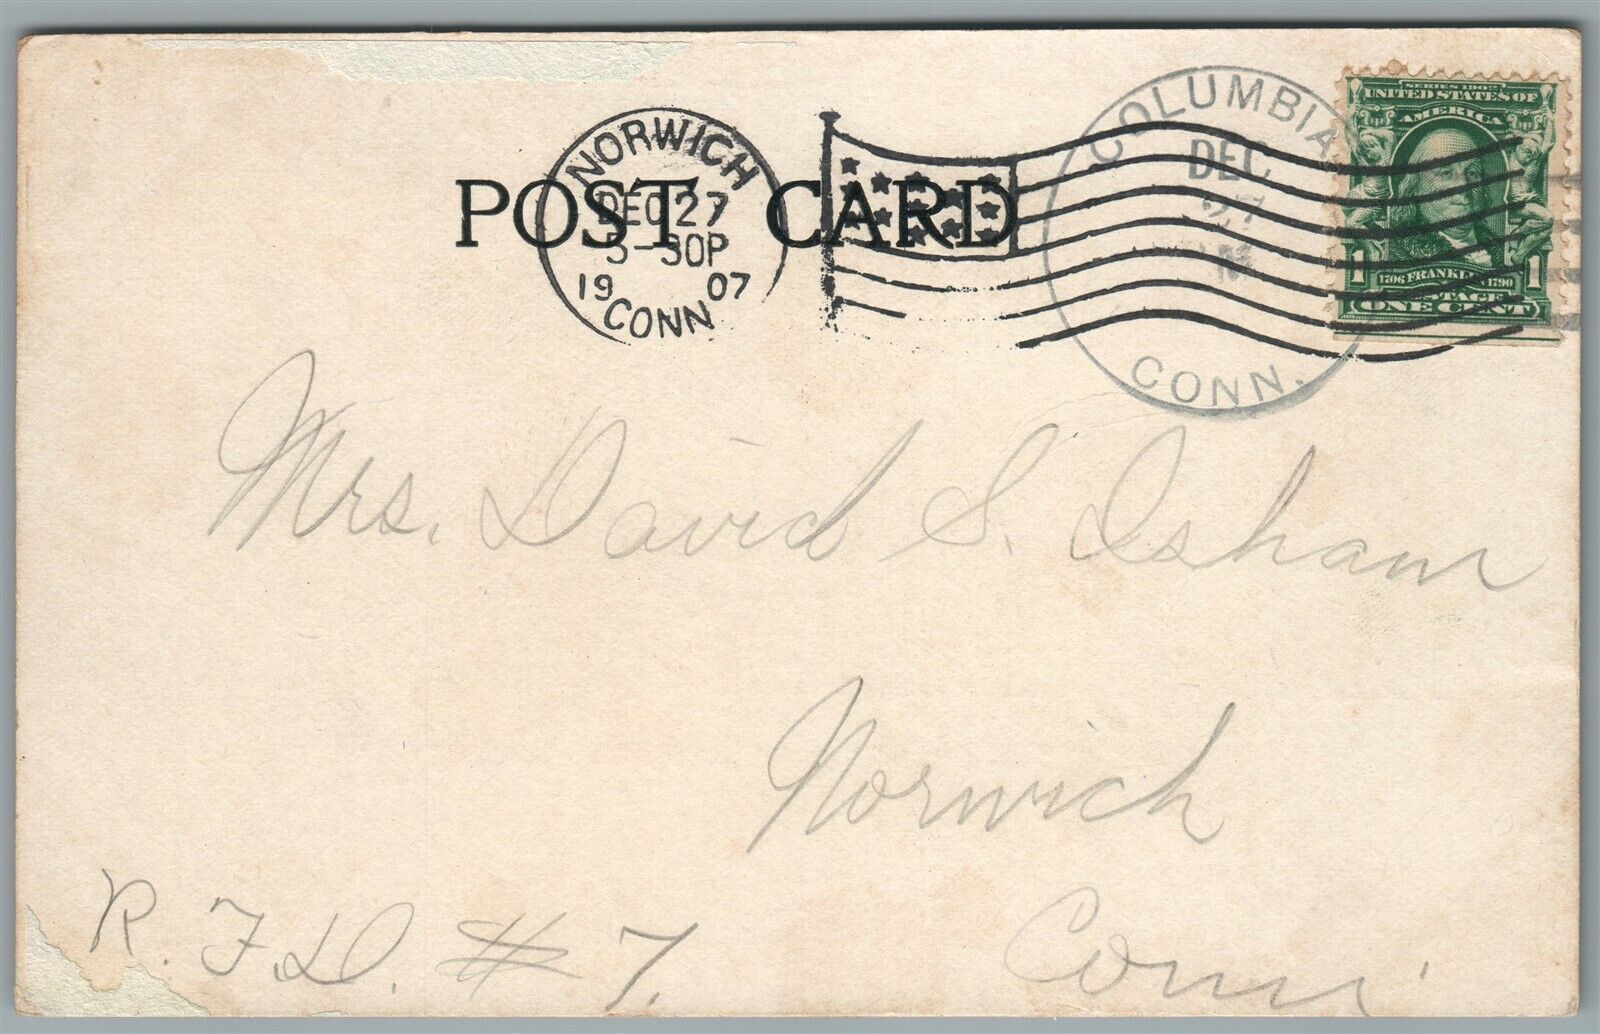 NORWICH
DEC 27
5-30P
1907
CONN
COLUMBIA
DEC
27
M
CONN.
SERIES 1902
UNITED STATES OF
AMERICA
1706 FRANKLIN 1790
1 1
POSTAGE
ONE CENT
POST CARD
Mrs. David S. Isham
Norwich
R.F.D. # 7.
Conn.